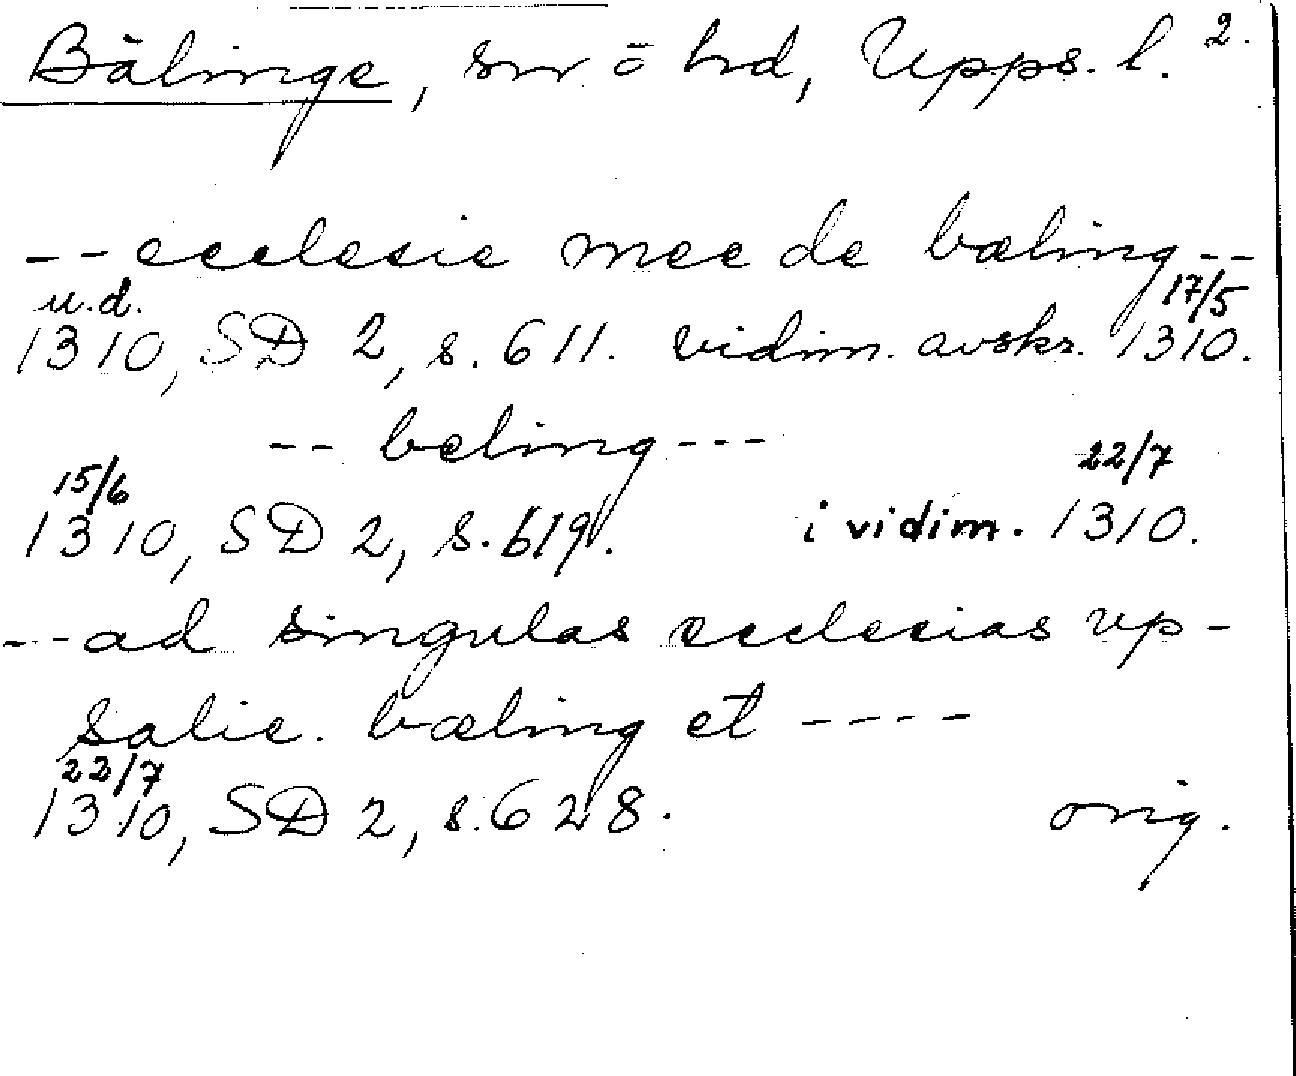 Bälinge, sn o hd, Upps. l. 2.
-- ecclesie mee de bæling --
u.d. 17/5
1310, SD 2, s. 611. vidim. avskr. 1310.
-- bæling ---
15/6 22/7
1310, SD 2, s. 619. i vidim. 1310.
-- ad singulas ecclesias up-
salie. bæling et ----
22/7
1310, SD 2, s. 628. orig.